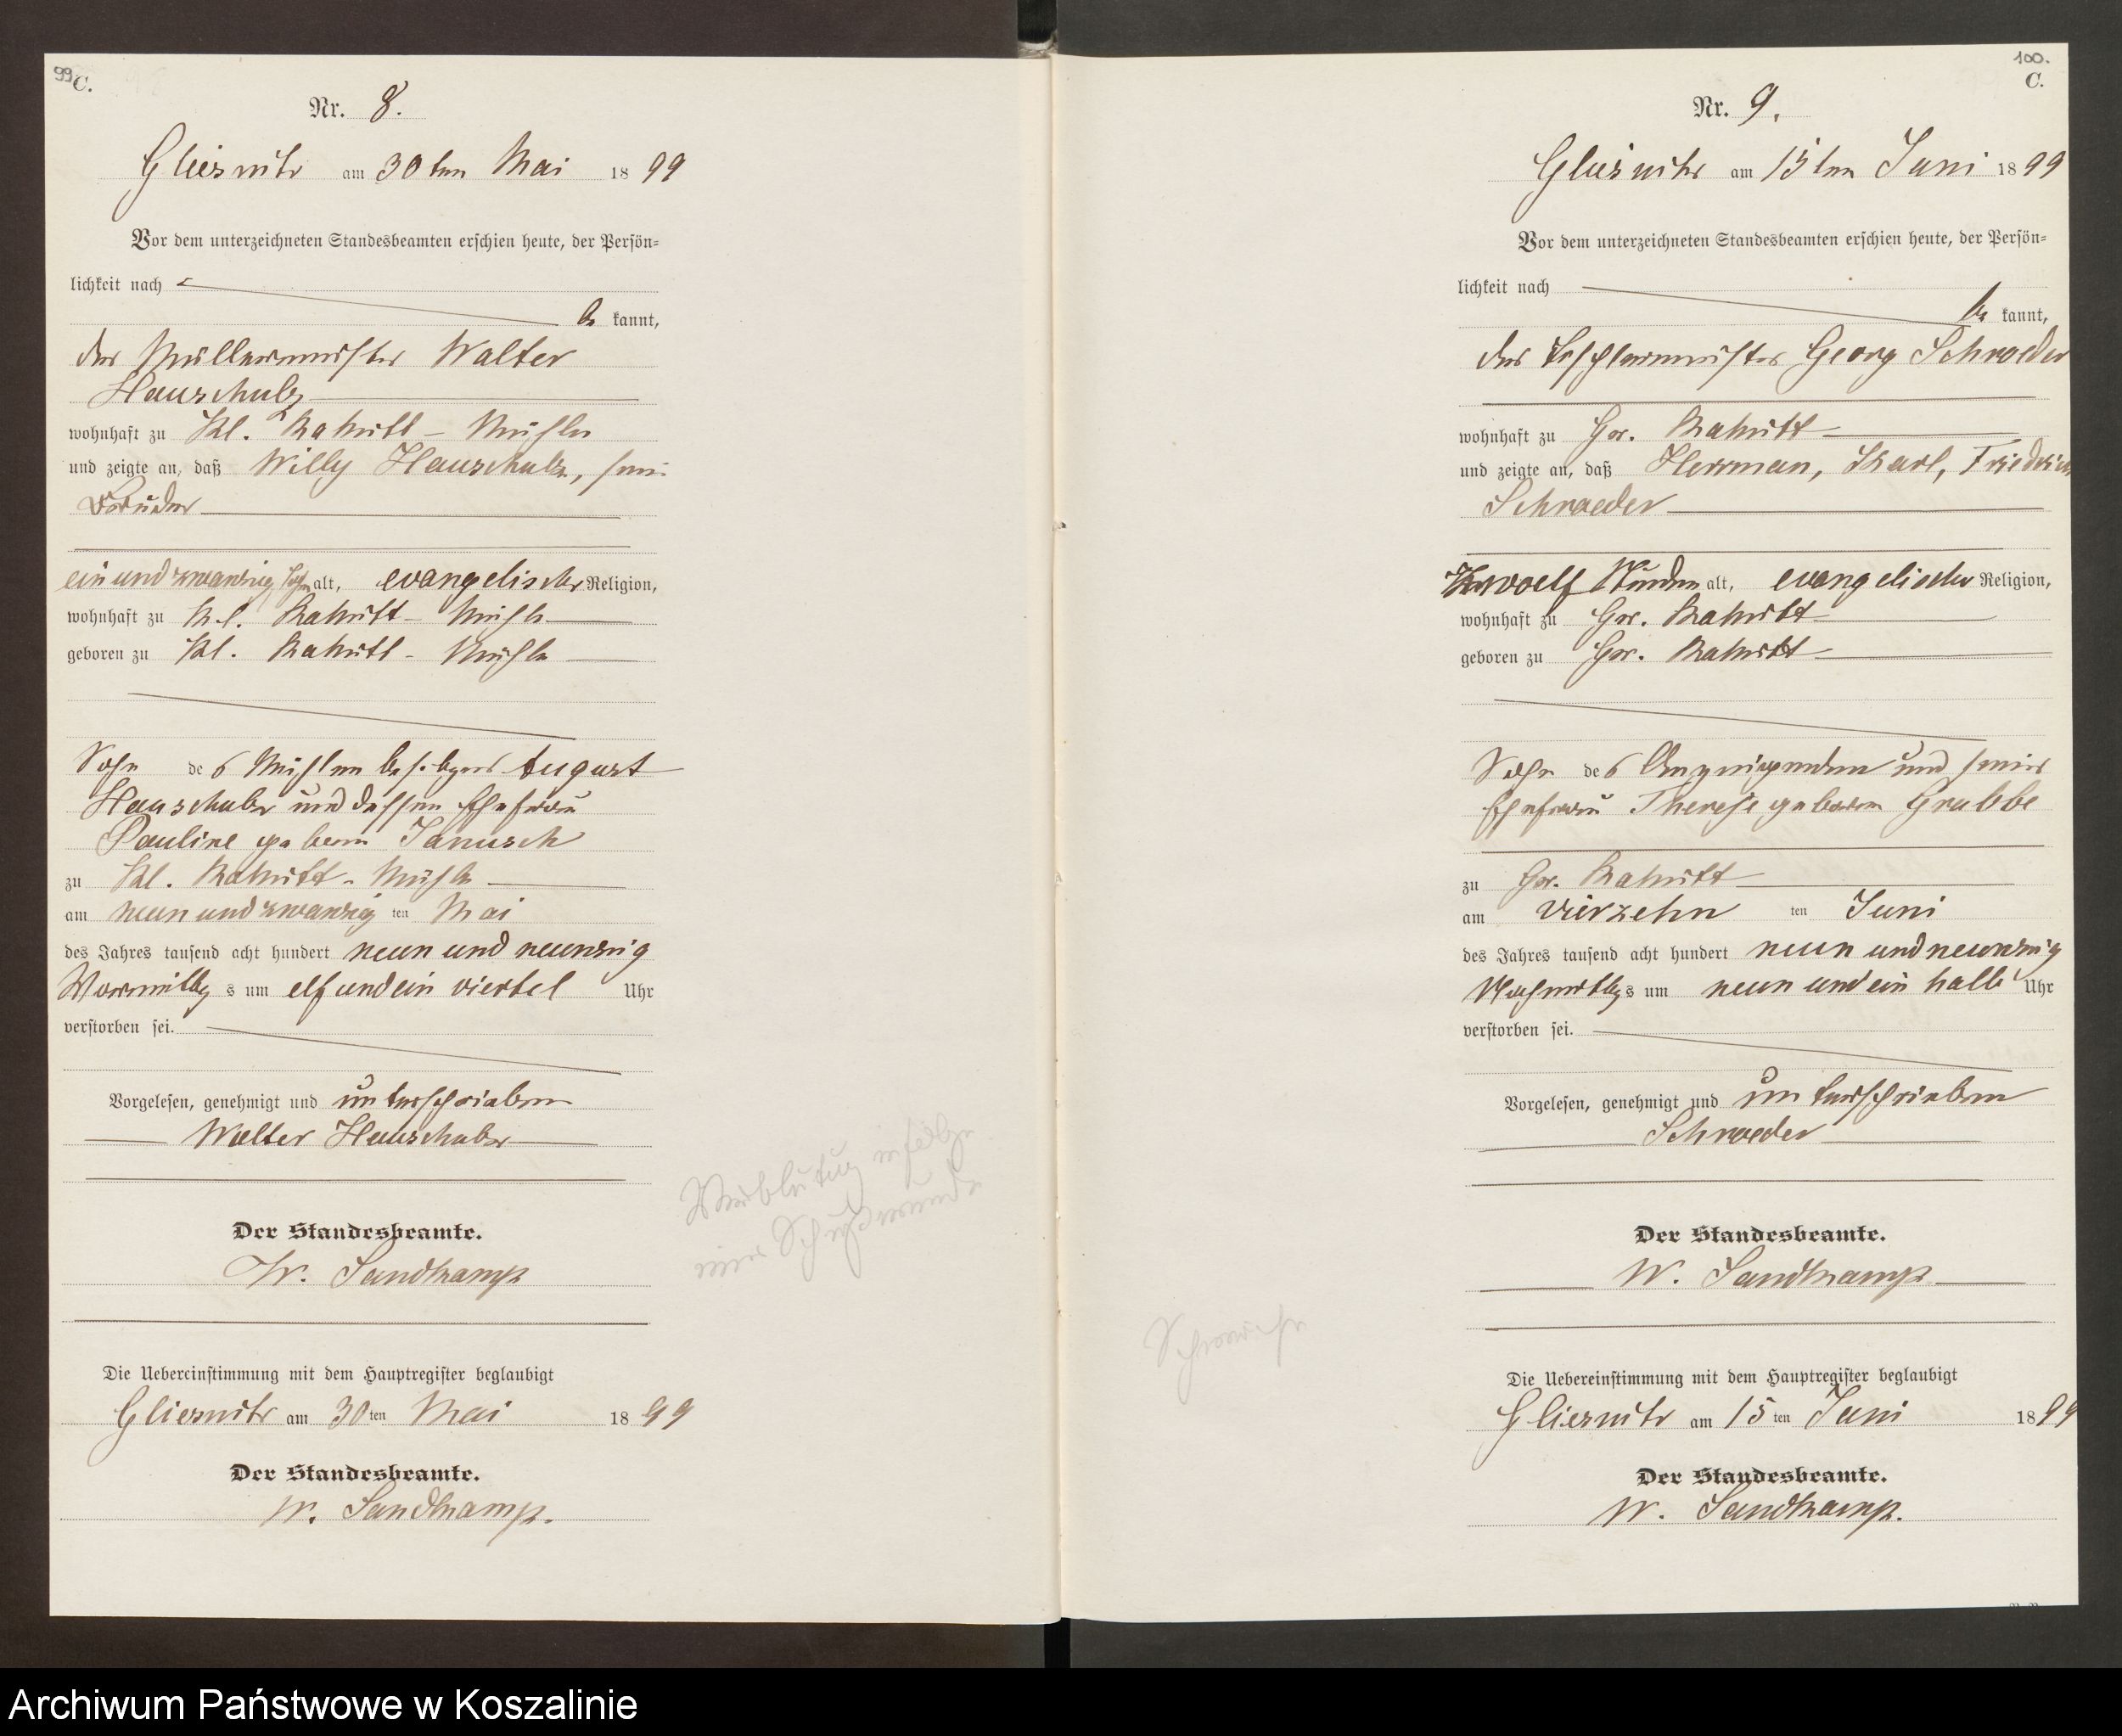 99
C.
Nr. 8.
Gliesnitz am 30ten Mai 1899
Vor dem unterzeichneten Standesbeamten erschien heute, der Persön=
lichkeit nach
be kannt,
der Müllermeister Walter
Hauschulz
wohnhaft zu Kl. Rakitt - Mühle
und zeigte an, daß Willy Hauschulz, sein
Bruder
ein und zwanzig Jahr alt, evangelischer Religion,
wohnhaft zu Kl. Rakitt - Mühle
geboren zu Kl. Rakitt - Mühle
Sohn des Mühlenbesitzers August
Hauschulz und dessen Ehefrau
Pauline geboren Janusch
zu Kl. Rakitt - Mühle
am neun und zwanzig ten Mai
des Jahres tausend acht hundert neun und neunzig
Vormittags um elf und ein viertel Uhr
verstorben sei.
Vorgelesen, genehmigt und unterschrieben
Walter Hauschulz
Verblutung infolge
einer Schußwunde
Der Standesbeamte.
W. Sandkamp
Die Uebereinstimmung mit dem Hauptregister beglaubigt
Gliesnitz am 30ten Mai 1899
Der Standesbeamte.
W. Sandkamp.
100.
C.
Nr. 9.
Gliesnitz am 15ten Juni 1899
Vor dem unterzeichneten Standesbeamten erschien heute, der Persön=
lichkeit nach
be kannt,
der Tischlermeister Georg Schroeder
wohnhaft zu Gr. Rakitt
und zeigte an, daß Herrman, Karl, Friedrich
Schroeder
zwoelf Stunden alt, evangelischer Religion,
wohnhaft zu Gr. Rakitt
geboren zu Gr. Rakitt
Sohn des Anzeigenden und seiner
Ehefrau Therese geboren Grabbe
zu Gr. Rakitt
am vierzehn ten Juni
des Jahres tausend acht hundert neun und neunzig
Nachmittags um neun und ein halb Uhr
verstorben sei.
Vorgelesen, genehmigt und unterschrieben
Schroeder
Der Standesbeamte.
W. Sandkamp
Schwäche
Die Uebereinstimmung mit dem Hauptregister beglaubigt
Gliesnitz am 15ten Juni 1899
Der Standesbeamte.
W. Sandkamp.
Archiwum Państwowe w Koszalinie